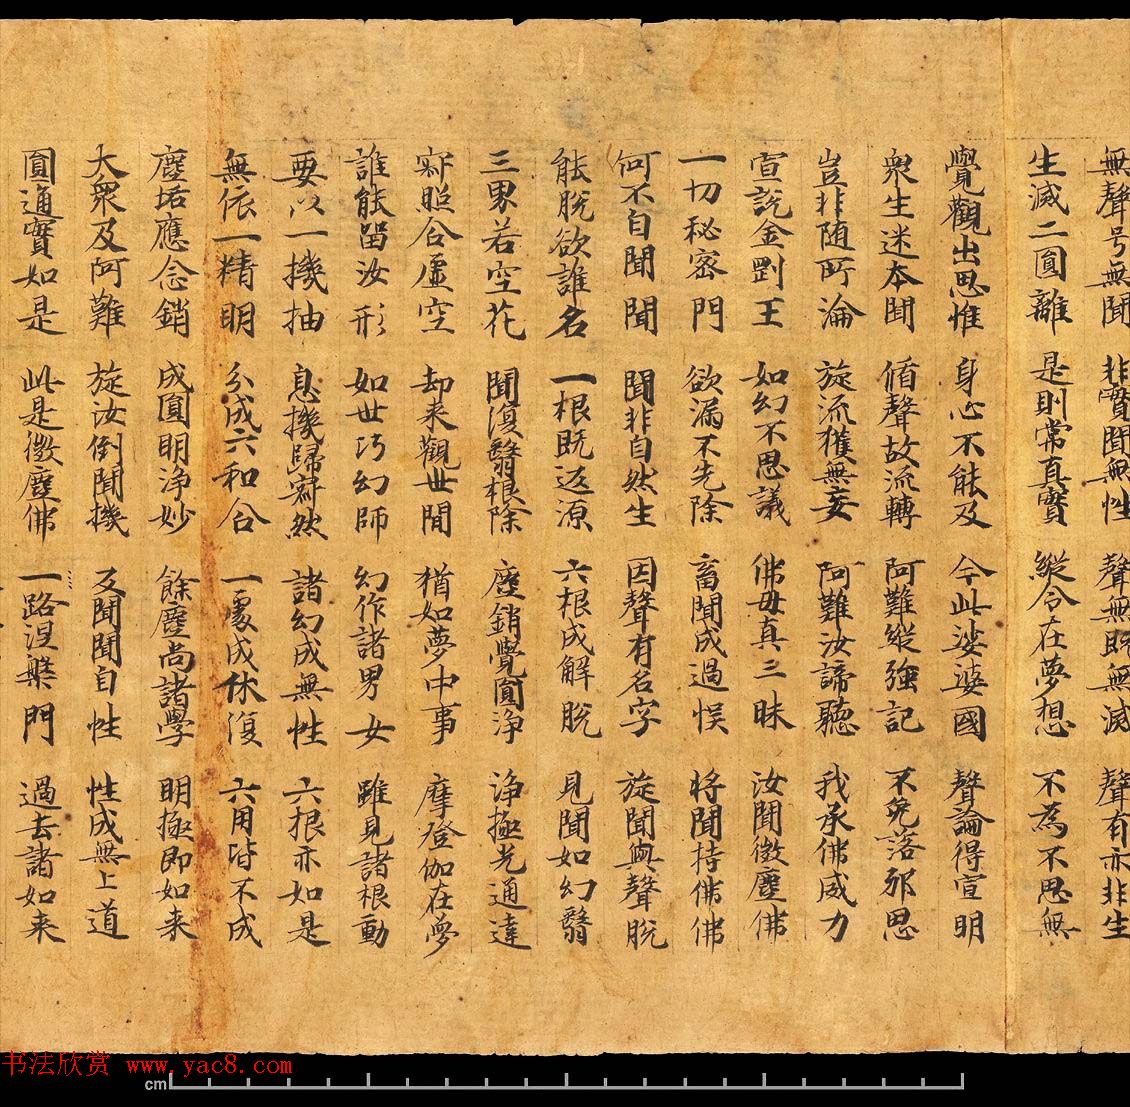 無聲号無聞 非實聞無性 聲無既無滅 聲有亦非生
生滅二圓離 是則常真實 縱令在夢想 不為不思無
覺觀出思惟 身心不能及 今此娑婆國 聲論得宣明
衆生迷本聞 循聲故流轉 阿難縱強記 不免落邪思
豈非随所淪 旋流獲無妄 阿難汝諦聽 我承佛威力
宣說金剛王 如幻不思議 佛母真三昧 汝聞微塵佛
一切秘密門 欲漏不先除 畜聞成過悮 將聞持佛佛
何不自聞聞 聞非自然生 因聲有名字 旋聞與聲脫
能脫欲誰名 一根既返源 六根成解脫 見聞如幻翳
三界若空花 聞復翳根除 塵銷覺圓淨 淨極光通達
寂照含虛空 却来觀世間 猶如夢中事 摩登伽在夢
誰能留汝形 如世巧幻師 幻作諸男女 雖見諸根動
要以一機抽 息機歸寂然 諸幻成無性 六根亦如是
無依一精明 分成六和合 一處成休復 六用皆不成
塵垢應念銷 成圓明淨妙 餘塵尚諸學 明極即如来
大衆及阿難 旋汝倒聞機 反聞聞自性 性成無上道
圓通實如是 此是微塵佛 一路涅槃門 過去諸如来
书法欣赏 www.yac8.com
cm